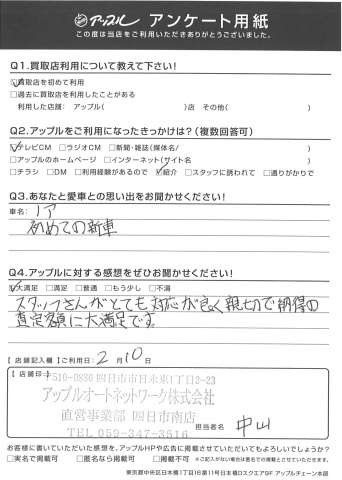 アップル アンケート用紙
この度は当店をご利用いただきありがとうございました。
Q1.買取店利用について教えて下さい!
☑買取店を初めて利用
□過去に買取店を利用したことがある
利用した店舗: アップル( )店 その他( )
Q2.アップルをご利用になったきっかけは?(複数回答可)
☑テレビCM □ラジオCM □新聞・雑誌(媒体名/ )
□アップルのホームページ □インターネット(サイト名 )
□チラシ □DM □利用経験があるので ☑紹介 □スタッフに誘われて □通りがかりで
Q3.あなたと愛車との思い出をお聞かせください!
車名: ノア
初めての新車
Q4.アップルに対する感想をぜひお聞かせください!
☑大満足 □満足 □普通 □もう少し □不満
スタッフさんがとても対応が良く親切で納得の
査定額に大満足です。
【店舗記入欄】ご利用日: 2月10日
【店舗印】
〒510-0886 四日市市日永東1丁目2-23
アップルオートネットワーク株式会社
直営事業部 四日市南店
TEL 059-347-3516
担当者名 中山
お客様に書いていただいた感想を、アップルHPや広告に掲載させていただいてもよろしいでしょうか?
□実名で掲載可 □匿名なら掲載可 □掲載不可 ※ご記入がない場合は匿名での掲載とさせていただきます。
東京都中央区日本橋1丁目16番11号日本橋Dスクエア8F アップルチェーン本部